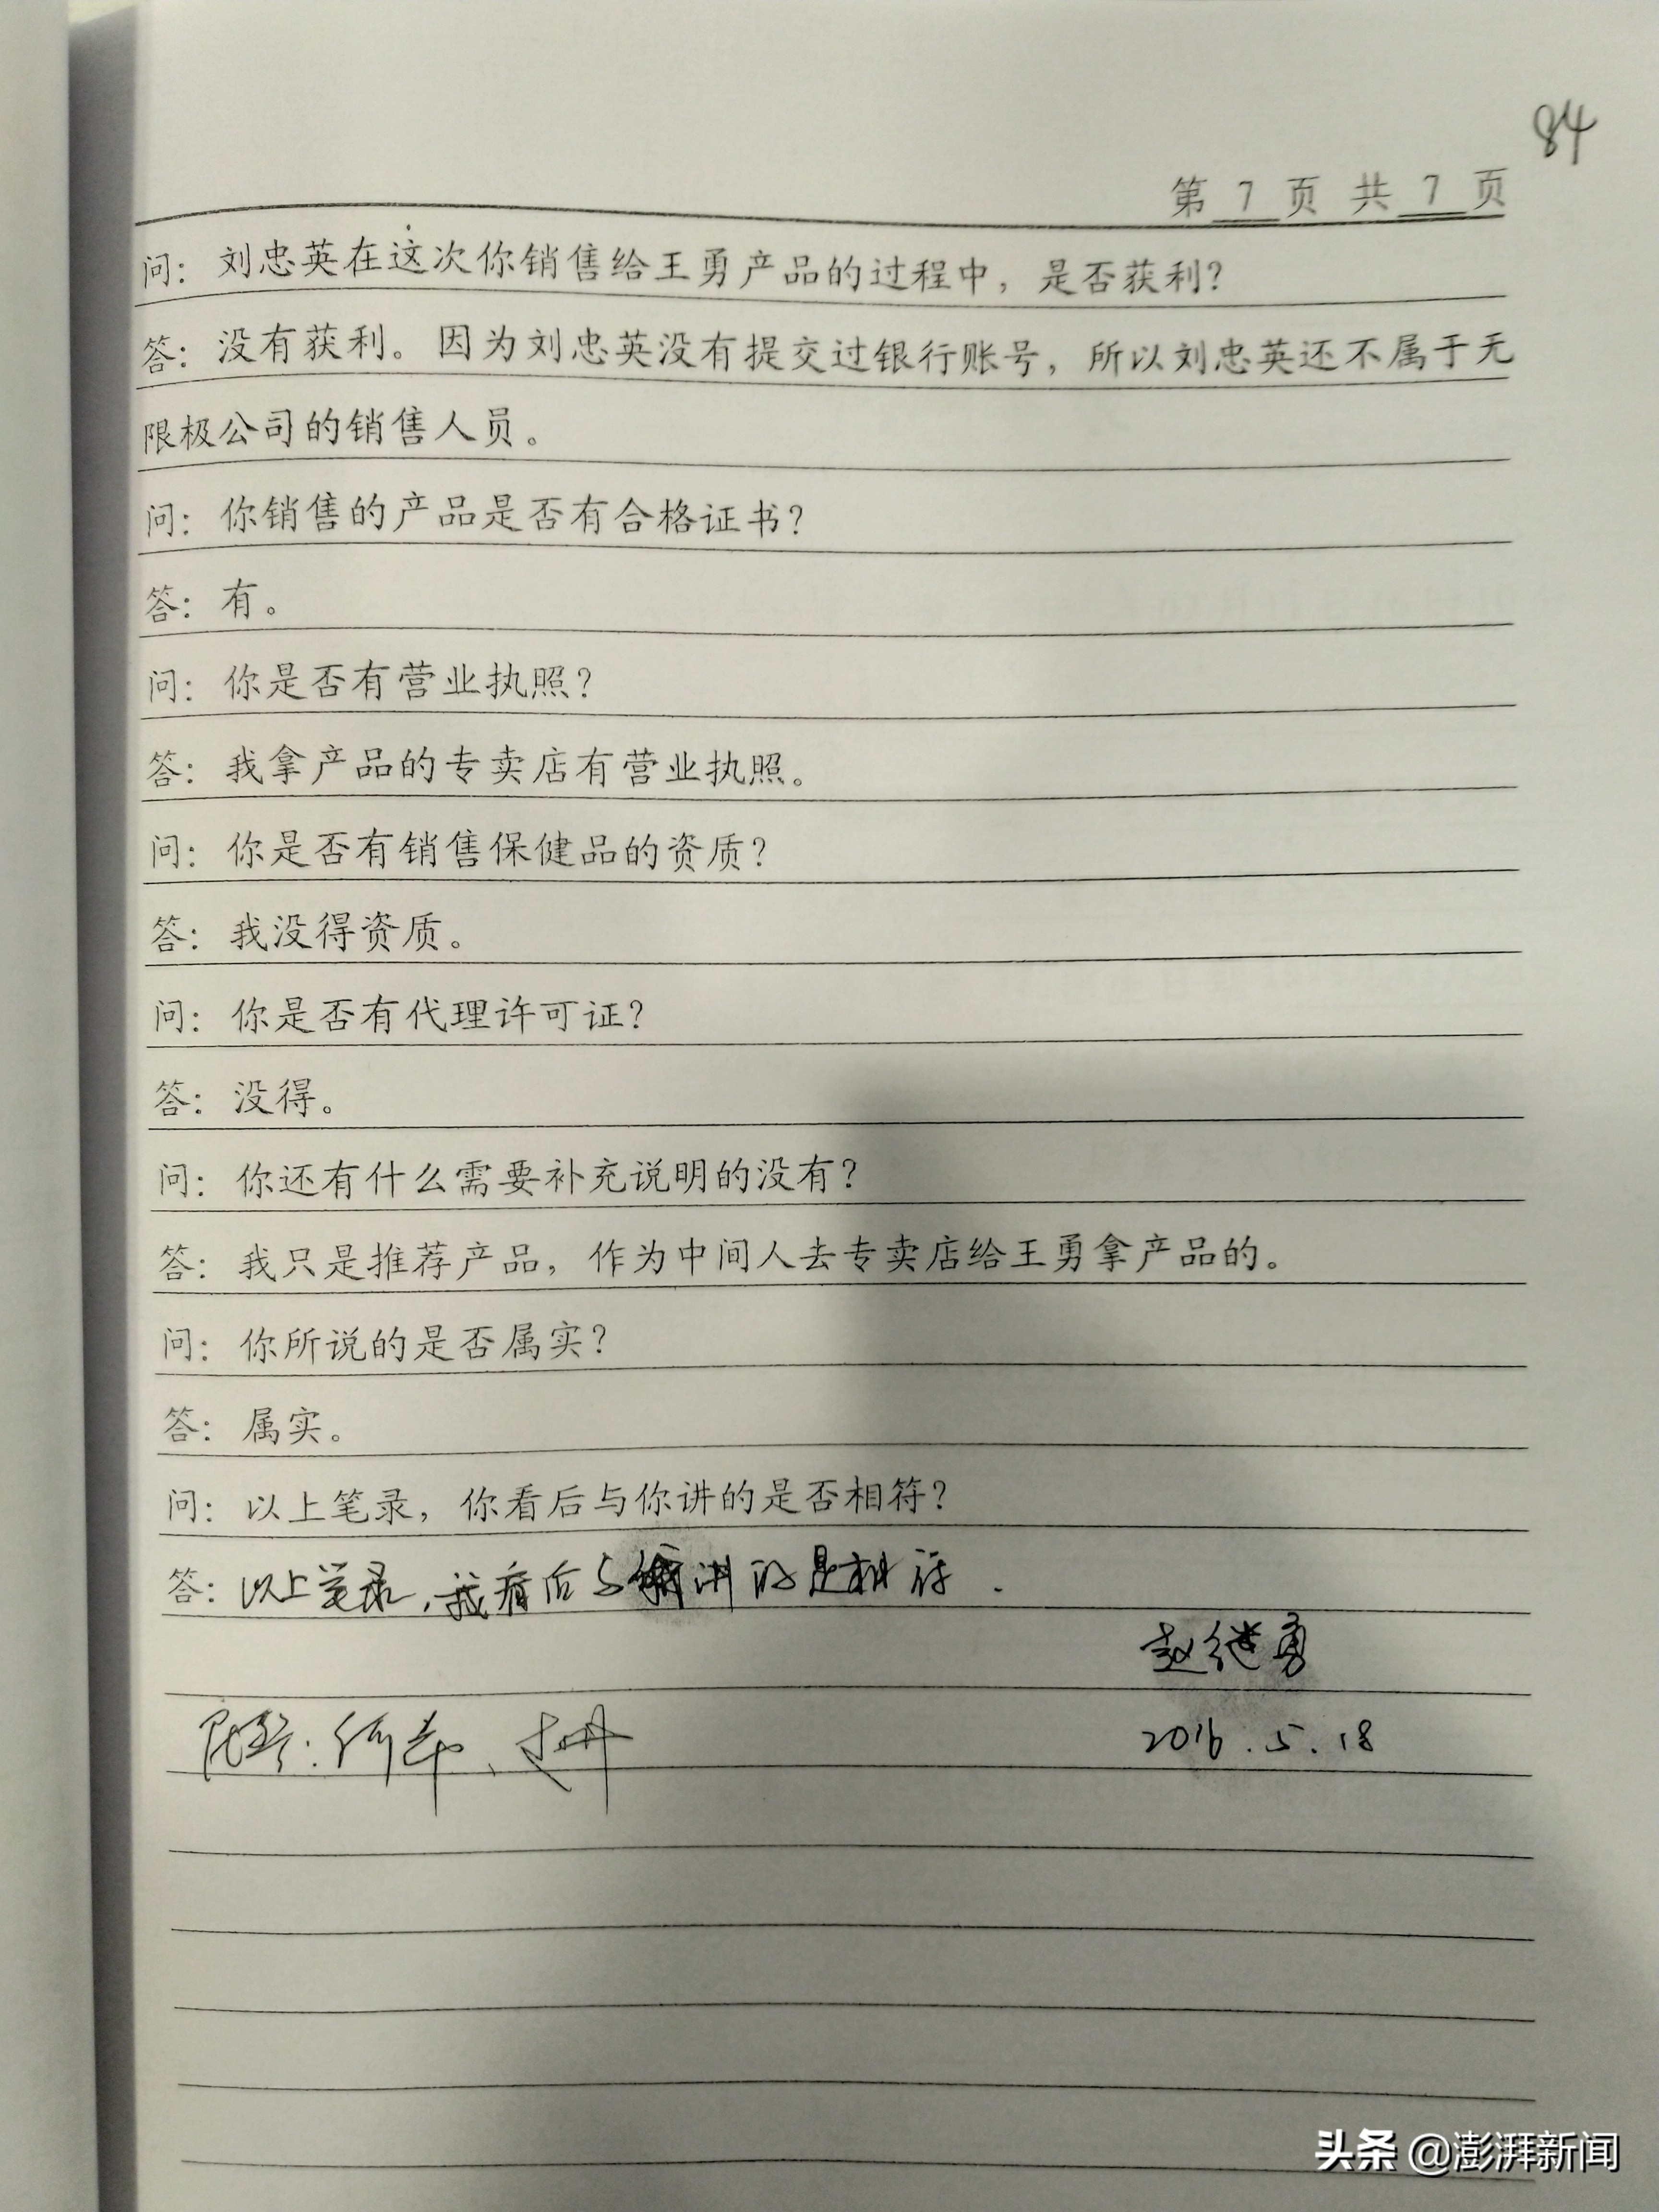 84
第 7 页 共 7 页
问：刘忠英在这次你销售给王勇产品的过程中，是否获利？
答：没有获利。因为刘忠英没有提交过银行账号，所以刘忠英还不属于无
限极公司的销售人员。
问：你销售的产品是否有合格证书？
答：有。
问：你是否有营业执照？
答：我拿产品的专卖店有营业执照。
问：你是否有销售保健品的资质？
答：我没得资质。
问：你是否有代理许可证？
答：没得。
问：你还有什么需要补充说明的没有？
答：我只是推荐产品，作为中间人去专卖店给王勇拿产品的。
问：你所说的是否属实？
答：属实。
问：以上笔录，你看后与你讲的是否相符？
答：以上笔录，我看后与我讲的是相符.
赵继勇
2016.5.18
头条 @澎湃新闻